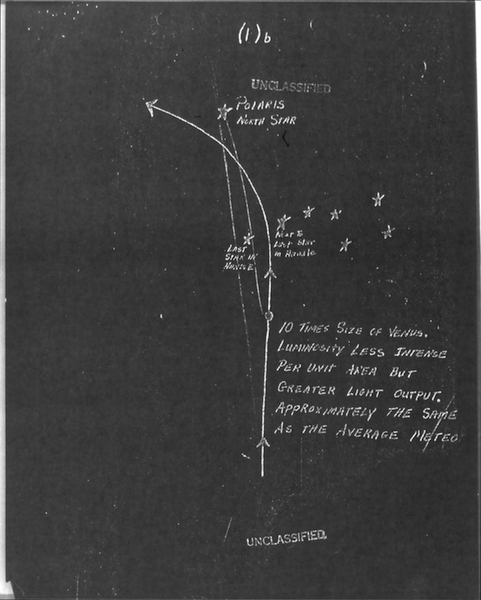 (1)b
UNCLASSIFIED
POLARIS
NORTH STAR
LAST
STAR IN
HANDLE
NEXT TO
LAST STAR
IN HANDLE
10 TIMES SIZE OF VENUS.
LUMINOSITY LESS INTENSE
PER UNIT AREA BUT
GREATER LIGHT OUTPUT.
APPROXIMATELY THE SAME
AS THE AVERAGE METEO
UNCLASSIFIED